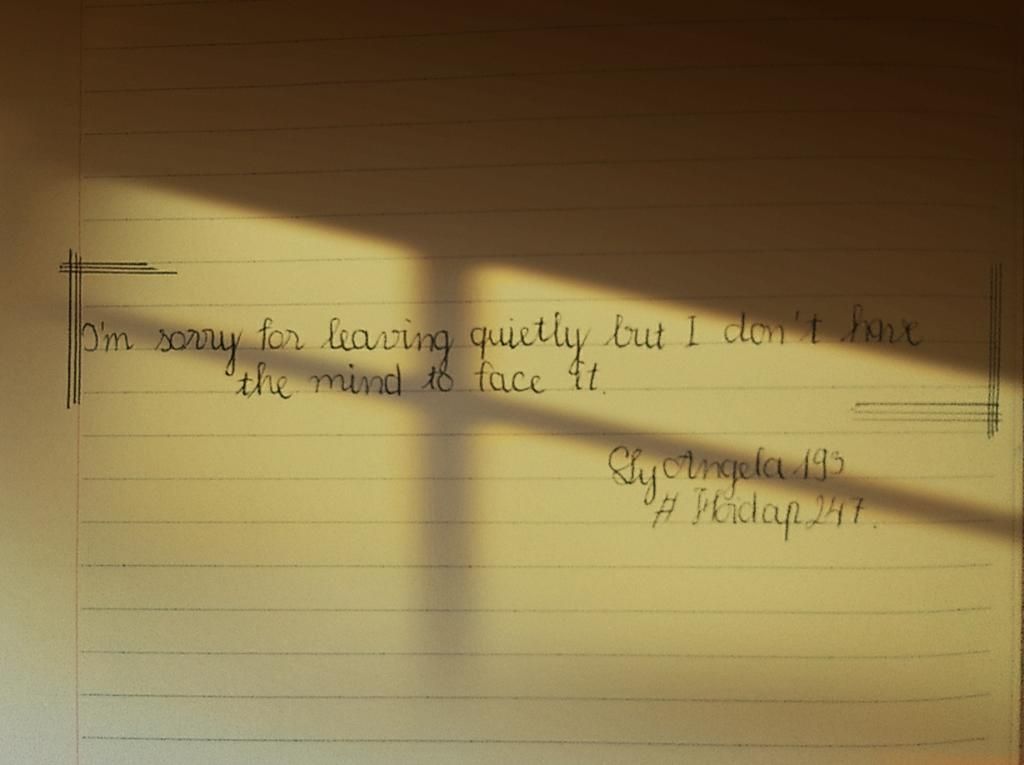 I'm sorry for leaving quietly but I don't have
the mind to face it.
SlyAngela193
# Hoidap247.